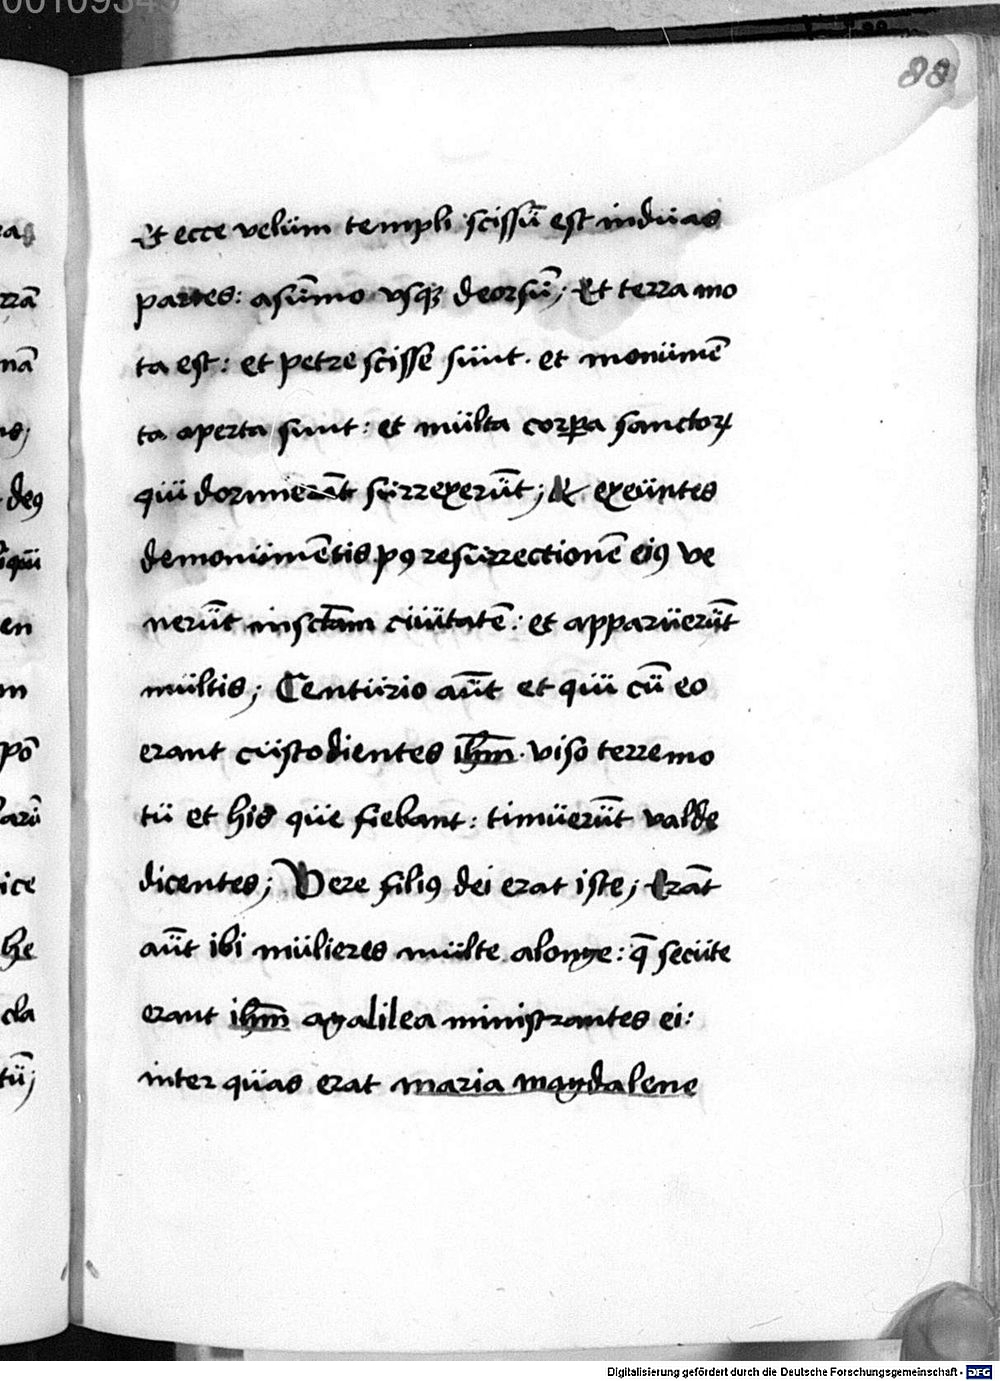 00109349
88
Et ecce velüm templi scissū est indüas
partes: asūmo vsqꝫ deorsū; Et terra mo
ta est: et petre scisse sünt. et monümē
ta aperta sunt: et mülta corꝑa sanctoꝝ
qui dormierāt sürrexerūt; & exeüntes
demonümētis pꝯ resürrectionē eiꝯ ve
nerūt insctam ciüitatē: et apparüerūt
mültis; Centürio aūt et qui cū eo
erant cüstodientes ihm̄. viso terremo
tü et his qüe fiebant: timüerūt valde
dicentes; Vere filiꝯ dei erat iste; Erāt
aūt ibi mülieres mülte alonge: q̄ secüte
erant ihm̄ agalilea ministrantes ei:
inter qüas erat maria magdalene
rrā
nā
deꝯ
en
m
pō
ice
he
cla
tū;
Digitalisierung gefördert durch die Deutsche Forschungsgemeinschaft - DFG